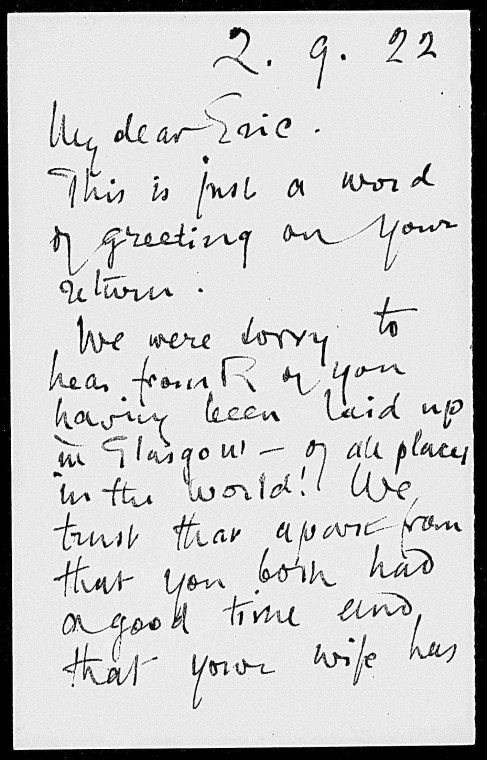 2. 9. 22
My dear Eric.
This is just a word
of greeting on your
return.
We were sorry to
hear from R of you
having been laid up
in Glasgow – of all places
in the world! We
trust that apart from
that you both had
a good time and
that your wife has